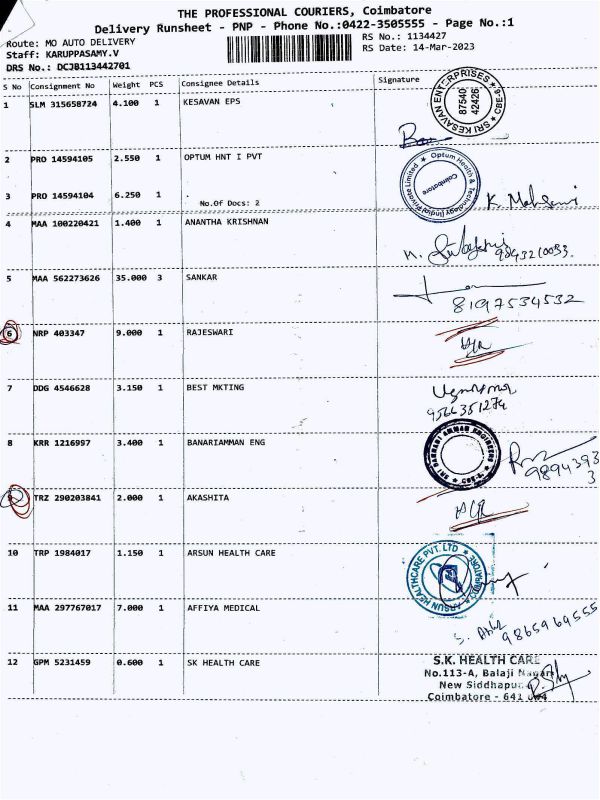 THE PROFESSIONAL COURIERS, Coimbatore
Delivery Runsheet - PNP - Phone No.:0422-3505555 - Page No.:1
Route: MO AUTO DELIVERY
RS No.: 1134427
Staff: KARUPPASAMY.V
RS Date: 14-Mar-2023
DRS No.: DCJB113442701
S No Consignment No Weight PCS Consignee Details Signature
1 SLM 315658724 4.100 1 KESAVAN EPS
SRI KESAVAN ENTERPRISES CBE-9
87540
42426
2 PRO 14594105 2.550 1 OPTUM HNT I PVT
Optum Health & Technology (India) Private Limited
Coimbatore
3 PRO 14594104 6.250 1
No.Of Docs: 2
4 MAA 100220421 1.400 1 ANANTHA KRISHNAN
5 MAA 562273626 35.000 3 SANKAR
8197534532
6 NRP 403347 9.000 1 RAJESWARI
7 DDG 4546628 3.150 1 BEST MKTING
9566351274
8 KRR 1216997 3.400 1 BANARIAMMAN ENG
SRI BANNARI AMMAN ENGINEERS
9894393
3
9 TRZ 290203841 2.000 1 AKASHITA
10 TRP 1984017 1.150 1 ARSUN HEALTH CARE
ARSUN HEALTHCARE PVT. LTD
COIMBATORE
11 MAA 297767017 7.000 1 AFFIYA MEDICAL
9865969555
12 GPM 5231459 0.600 1 SK HEALTH CARE
S.K. HEALTH CARE
No.113-A, Balaji Nagar
New Siddhapur
Coimbatore - 641